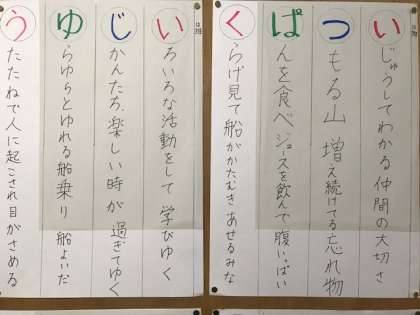 いじゅうしてわかる仲間の大切さ
つもる山 増え続けてる忘れ物
ぱんを食べジュースを飲んで腹いっぱい
くらげ見て船がかたむきあせるみな
いろいろな活動をして 学びゆく
じかんたち楽しい時が 過ぎてゆく
ゆらゆらとゆれる船乗り 船よいだ
うたたねで人に起こされ目がさめる